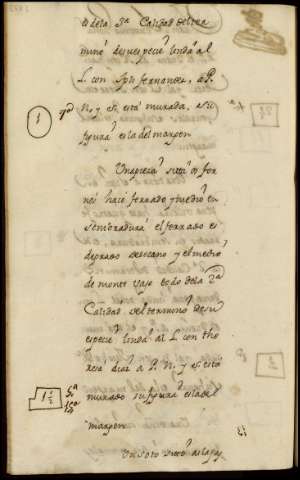 es dela 3ª Calidad del ter
mino de su especie linda al
L. con Jph. fernandez, a P.
N. y S. está murada, su
figura es la del marxen
1
Una pieza
nes hace ferrado y medio en
sembradura el ferrado es
de prado secano y el medio
de monte vajo todo de la 2ª
Calidad del termino de su
especie linda al L. con tho
resa diaz a P. N. y S. está
murado su figura es la del
marxen
1 1/2
Un soto